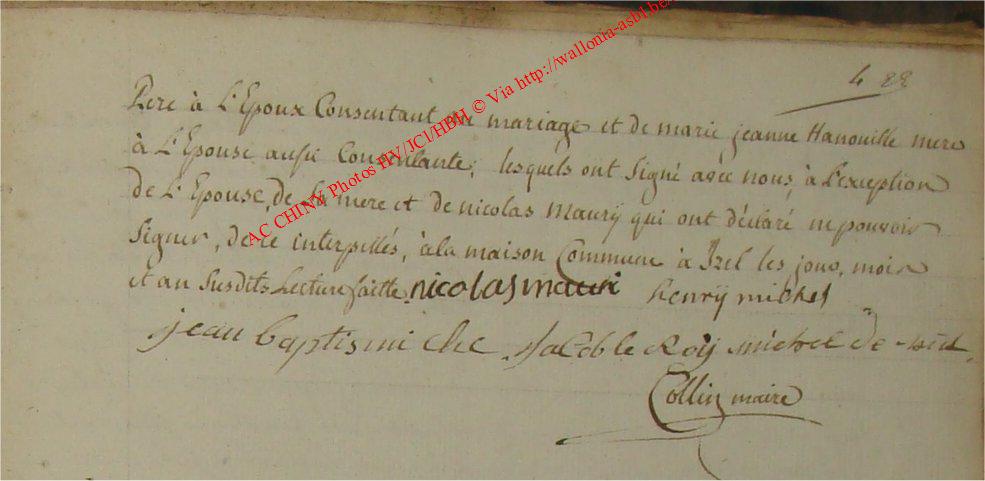 4 22
Pere à L'Epoux Consentant au mariage et de marie jeanne Hanouille mere
à L'Epouse aussi Consentante, lesquels ont Signé avec nous, à L'exception
de L'Epouse, de Sa mere et de nicolas Maurÿ qui ont déclaré ne pouvoir
Signer, de ce interpellés, à la maison Commune à Izel les jour, mois
et an Susdits Lecture faitte. nicolas mauri henrÿ michel
jean baptis michel Jacob le Roÿ michel de
Collin maire
AC CHINY Photos HV/JCl/HBH © Via http://wallonia-asbl.be/